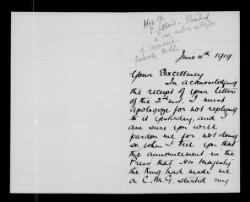 June 4th 1919
Your Excellency
In acknowledging
the receipt of your letter
of the 2nd inst, I must
apologize for not replying
to it yesterday, and I
am sure you will
pardon me for not doing
so when I tell you that
the announcement in the
Press that His Majesty
the King had made me
a C.M.G. started my